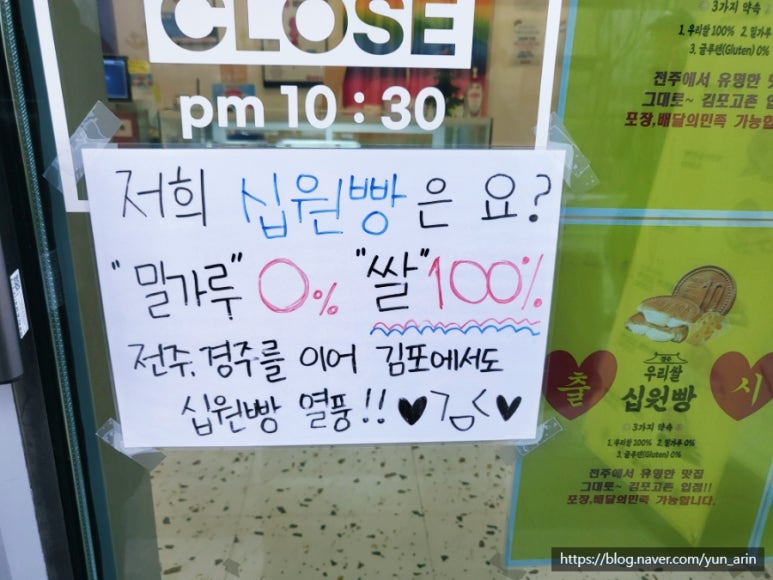 CLOSE
pm 10 : 30
저희 십원빵은 요?
"밀가루" 0% "쌀" 100%
전주, 경주를 이어 김포에서도
십원빵 열풍!! ♥김<♥
3가지 약속
1. 우리쌀 100% 2. 밀가루
3. 글루텐(Gluten) 0%
전주에서 유명한 맛
그대로~ 김포고촌 입
포장,배달의민족 가능합
10
경주
우리쌀
출 십원빵 시
3가지 약속
1. 우리쌀 100% 2. 밀가루 0%
3. 글루텐(Gluten) 0%
전주에서 유명한 맛집
그대로~ 김포고촌 입점!!
포장,배달의민족 가능합니다.
https://blog.naver.com/yun_arin